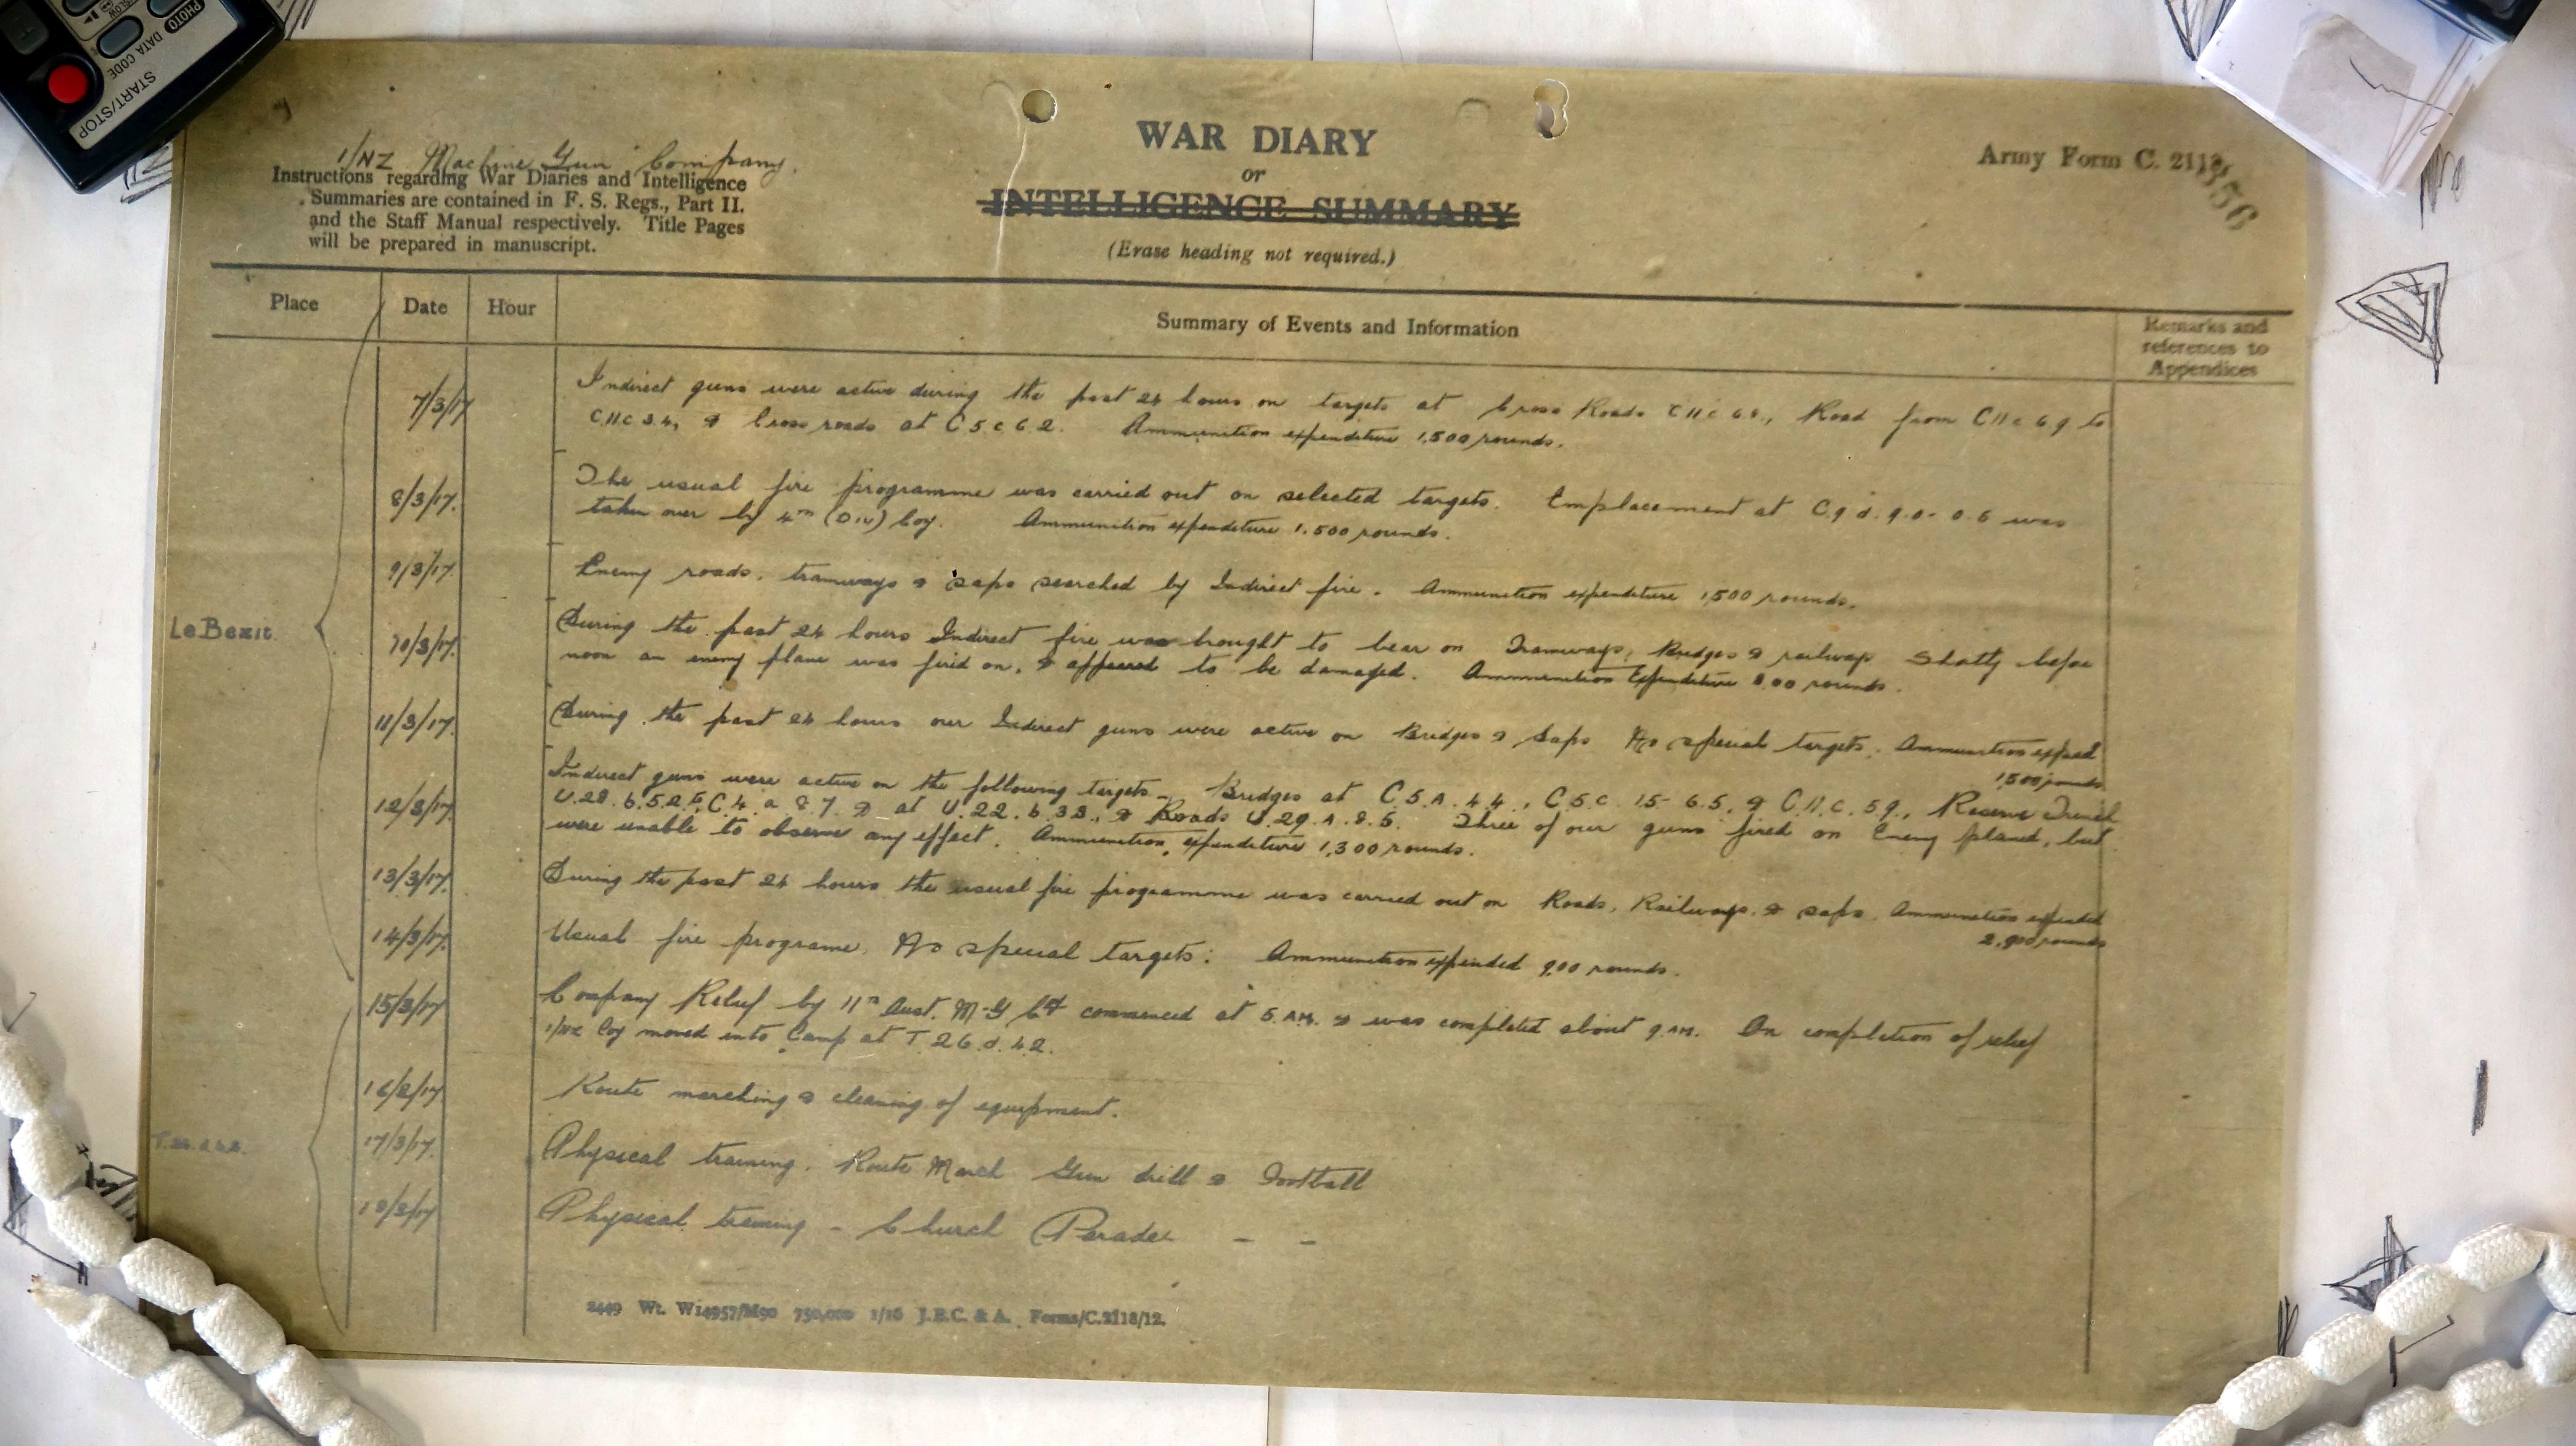 START/STOP
DATA CODE
PHOTO
SLOW
1/NZ Machine Gun Company.
Instructions regarding War Diaries and Intelligence
Summaries are contained in F. S. Regs., Part II.
and the Staff Manual respectively. Title Pages
will be prepared in manuscript.
WAR DIARY
or
INTELLIGENCE SUMMARY
(Erase heading not required.)
Army Form C. 2118.
Place Date Hour Summary of Events and Information Remarks and
references to
Appendices
7/3/17 Indirect guns were active during the past 24 hours on targets at Cross Roads C11c 6.8., Road from C11c 6.9 to
C.11.C 3.4, & Cross roads at C5.c 6.2. Ammunition expenditure 1,500 rounds.
8/3/17. The usual fire programme was carried out on selected targets. Emplacement at C.9.d.9.0-0.6 was
taken over by 4th (Div) Coy. Ammunition expenditure 1.500 rounds.
9/3/17. Enemy roads, tramways & saps searched by Indirect fire. Ammunition expenditure 1,500 rounds.
Le Bezit.
10/3/17. During the past 24 hours Indirect fire was brought to bear on Tramways, Bridges & railways Shotly before
noon an enemy plane was fired on, & appeared to be damaged. Ammunition Expenditure 800 rounds.
11/3/17. During the past 24 hours our Indirect guns were active on Bridges & Saps No special targets. Ammunition expend
1,500 rounds
12/3/17. Indirect guns were active on the following targets - Bridges at C.5.A.4.4., C.5.C.15-6.5, & C.11.C.5.9., Reserve Trench
U.28.b.5.2 to C.4.a.8.7. & at U.22.b.3.3., & Roads U.29.A.8.5. Three of our guns fired on Enemy planes, but
were unable to observe any effect. Ammunition expenditure 1,300 rounds.
13/3/17. During the past 24 hours the usual fire programme was carried out on Roads, Railways, & saps. Ammunition expended
2,900 rounds
14/3/17. Usual fire programe. No special targets: Ammunition expended 900 rounds.
15/3/17 Company Relief by 11th Aust. M-G Coy commenced at 5.AM. & was completed about 9.AM. On completion of relief
1/NZ Coy moved into Camp at T.26.d.4.2.
16/3/17 Route marching & cleaning of equipment.
T.26.d.4.2.
17/3/17. Physical training. Route March Gun drill & Football
18/3/17 Physical training - Church Parade - -
2449 Wt. W14957/M90 750,000 1/16 J.B.C. & A. Forms/C.2118/12.